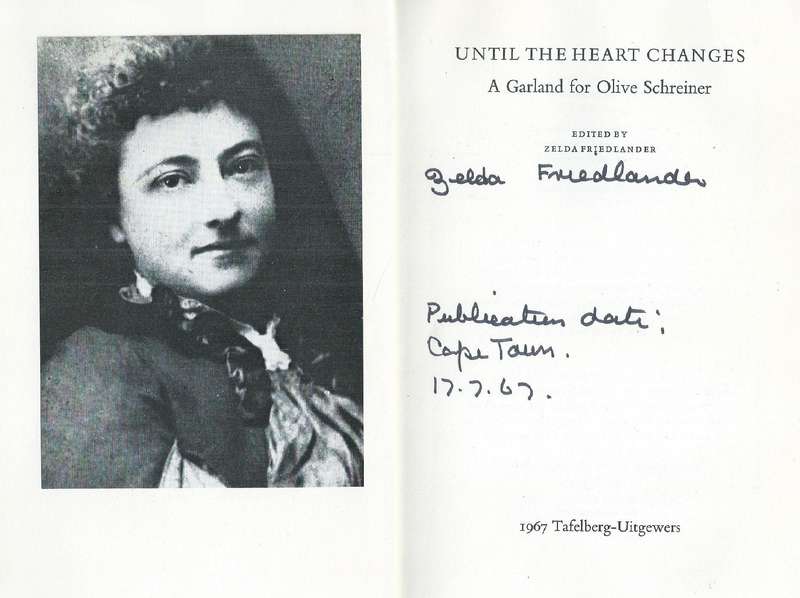 UNTIL THE HEART CHANGES
A Garland for Olive Schreiner
EDITED BY
ZELDA FRIEDLANDER
Zelda Friedlander
Publication date:
Cape Town.
17.7.67.
1967 Tafelberg-Uitgewers